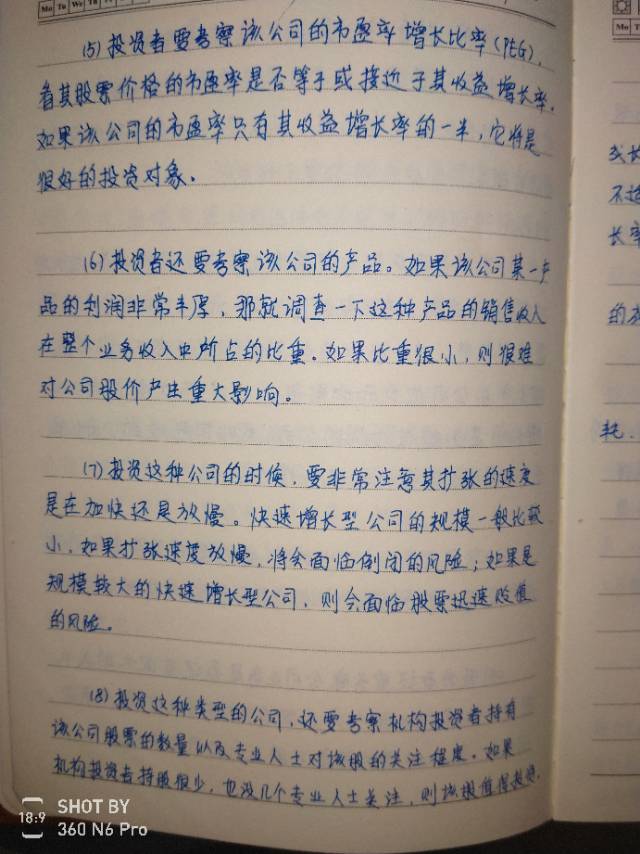 Mo Tu We Th
Mo T
(5)投资者要考察该公司的市盈率增长比率(PEG),
看其股票价格的市盈率是否等于或接近于其收益增长率.
如果该公司的市盈率只有其收益增长率的一半,它将是
很好的投资对象.
(6)投资者还要考察该公司的产品。如果该公司某一产
品的利润非常丰厚,那就调查一下这种产品的销售收入
在整个业务收入中所占的比重.如果比重很小,则很难
对公司股价产生重大影响。
(7)投资这种公司的时候,要非常注意其扩张的速度
是在加快还是放慢。快速增长型公司的规模一般比较
小,如果扩张速度放慢,将会面临倒闭的风险;如果是
规模较大的快速增长型公司,则会面临股票迅速贬值
的风险。
(8)投资这种类型的公司,还要考察机构投资者持有
该公司股票的数量以及专业人士对该股的关注程度.如果
机构投资者持股很少,也没几个专业人士关注,则该股值得投资.
成长
不超
长率
的
耗.
18:9
SHOT BY
360 N6 Pro